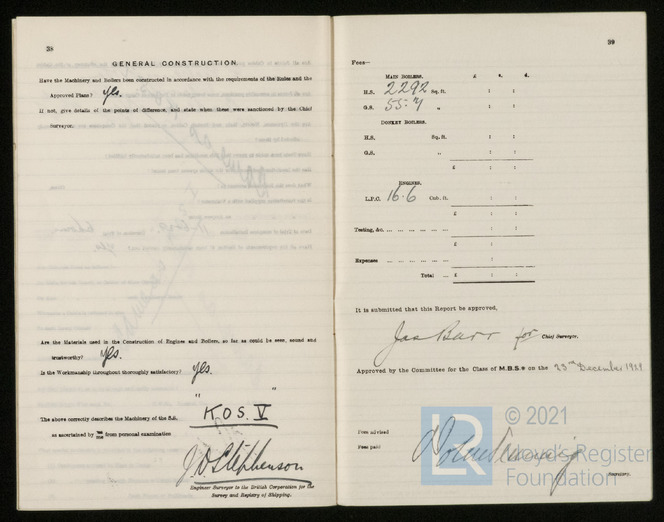 38
GENERAL CONSTRUCTION
Have the Machinery and Boilers been constructed in accordance with the requirements of the Rules and the
Approved Plans? Yes.
If not, give details of the points of difference, and state when these were sanctioned by the Chief
Surveyor.
Are the Materials used in the Construction of Engines and Boilers, so far as could be seen, sound and
trustworthy? Yes.
Is the Workmanship throughout thoroughly satisfactory? Yes.
" "
The above correctly describes the Machinery of the S.S. KOS. V
as ascertained by me from personal examination
J D Stephenson
Engineer Surveyor to the British Corporation for the
Survey and Registry of Shipping.
39
Fees—
MAIN BOILERS. £ s. d.
H.S. 2292 Sq. ft. : :
G.S. 55.7 " : :
DONKEY BOILERS.
H.S. Sq. ft. : :
G.S. " : :
£ : :
ENGINES.
L.P.C. 16.6 Cub. ft. : :
£ : :
Testing, &c. ... : :
£ : :
Expenses ... :
Total ... £ : :
It is submitted that this Report be approved,
Jas Barr for Chief Surveyor.
Approved by the Committee for the Class of M.B.S.* on the 23rd December 1929
Fees advised
Fees paid
Secretary.
LR © 2021
Lloyd's Register
Foundation